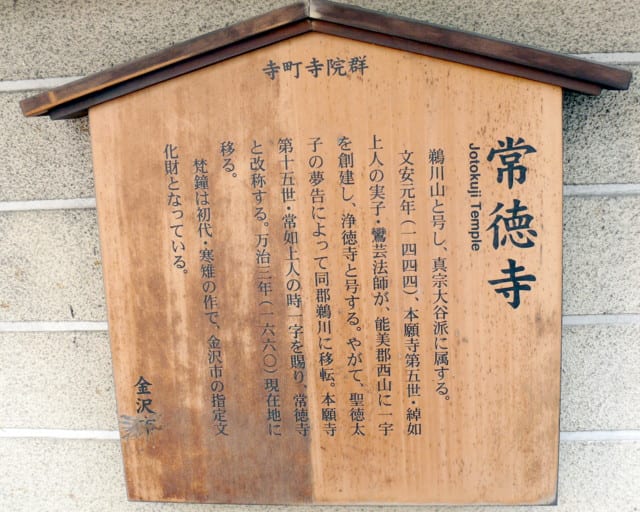 寺町寺院群
常徳寺
Jotokuji Temple
鵜川山と号し、真宗大谷派に属する。
文安元年(一四四四)、本願寺第五世・綽如
上人の実子・鸞芸法師が、能美郡西山に一宇
を創建し、浄徳寺と号する。やがて、聖徳太
子の夢告によって同郡鵜川に移転。本願寺
第十五世・常如上人の時一字を賜り、常徳寺
と改称する。万治三年(一六六〇)現在地に
移る。
梵鐘は初代・寒雉の作で、金沢市の指定文
化財となっている。
金沢市